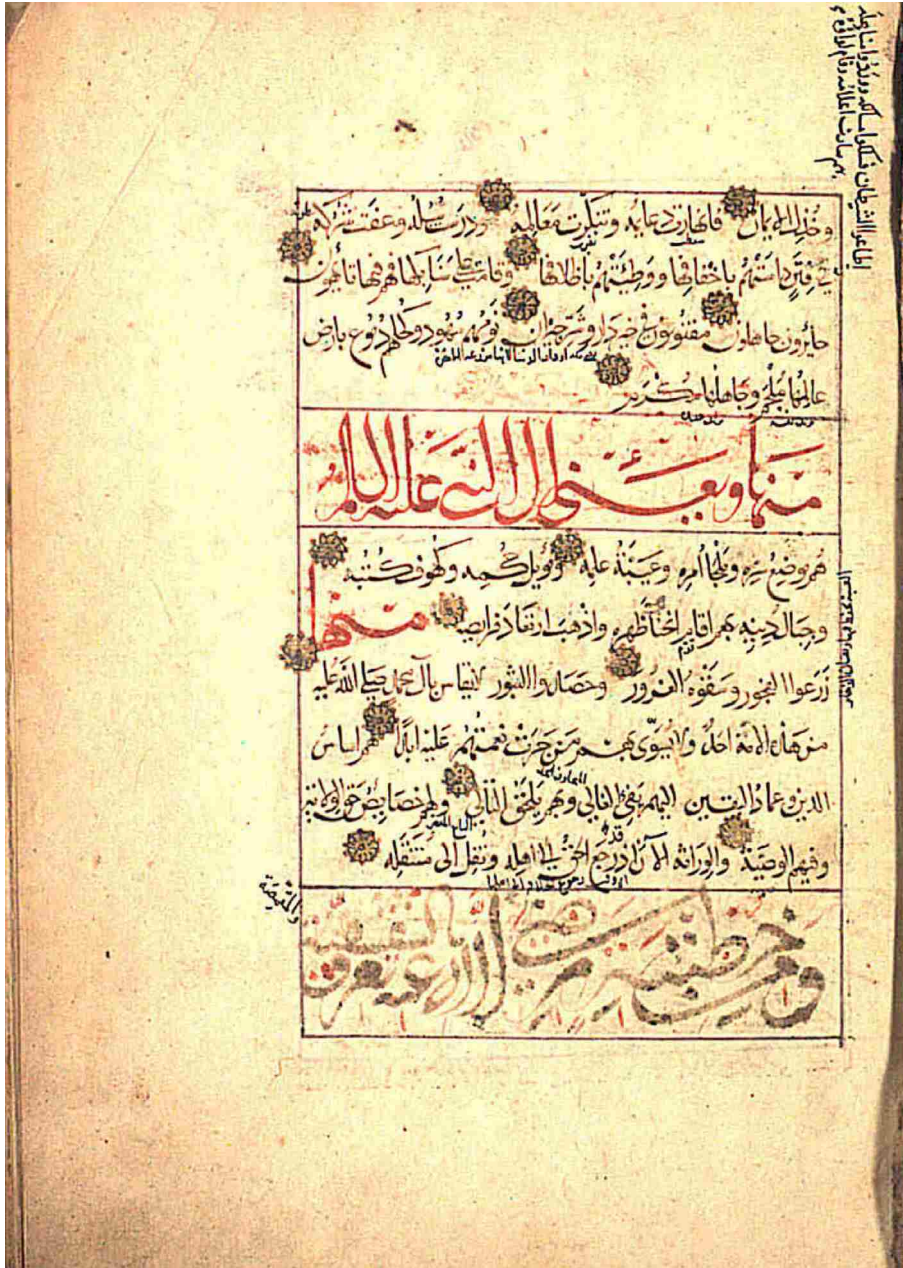 اطاعوا الشيطان فسلكوا مسالكه ووردوا مناهله
بهم سارت اعلامه وقام لواؤه
وخذل الايمان فانهارت دعايمه وتنكرت معالمه ودرست سبله وعفت شركه
في فتن داستهم باخفافها ووطئتهم باظلافها وقامت على سنابكها فهم فيها تائهون
حايرون جاهلون مفتونون في خير دار وشر جيران نومهم سهود وكحلهم دموع بارض
عالمها ملجم وجاهلها مكرم
منها ويعني ال النبي عليه السلم
هم موضع سره وملجأ امره وعيبة علمه وموئل حكمه وكهوف كتبه
وجبال دينه بهم اقام انحناء ظهره واذهب ارتعاد فرايصه منها
زرعوا الفجور وسقوه الغرور وحصدوا الثبور لا يقاس بآل محمد صلى الله عليه
من هذه الامة احد ولا يسوى بهم من جرت نعمتهم عليه ابدا هم اساس
الدين وعماد اليقين اليهم يفيء الغالي وبهم يلحق التالي ولهم خصايص حق الولاية
وفيهم الوصية والوراثة الآن اذ رجع الحق الى اهله ونقل الى منتقله
ومن خطبته رضي الله عنه تعرف بالشقشقية
والمقمصة